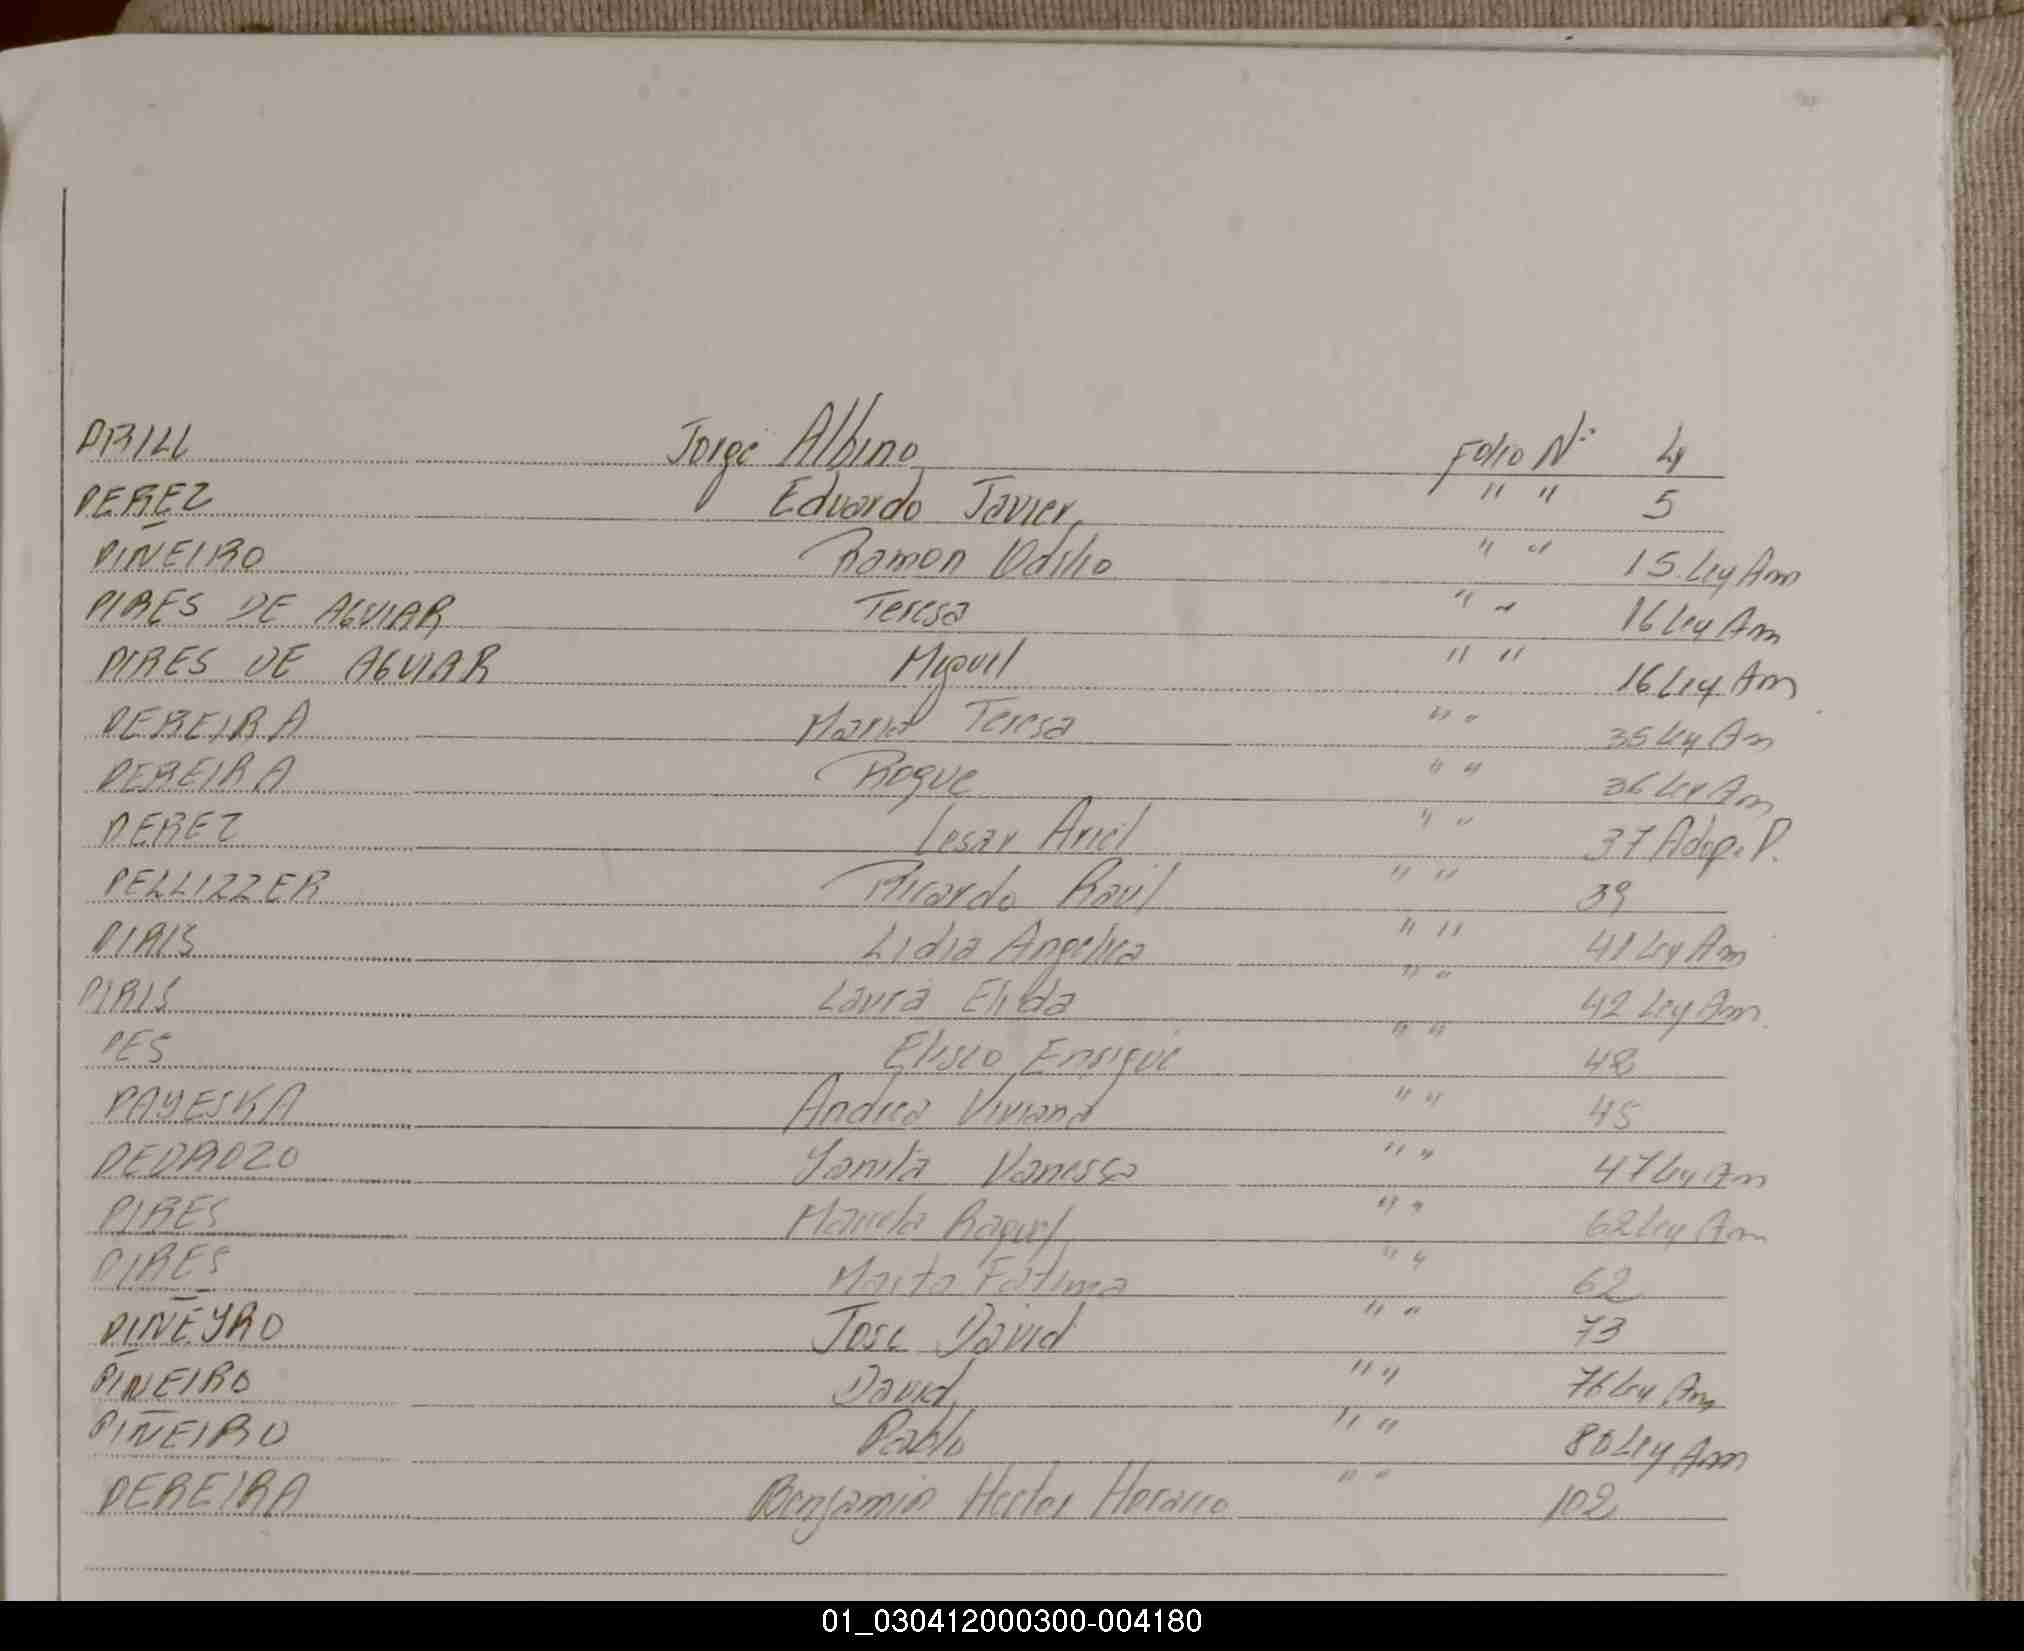 PRILL Jorge Albino Folio Nº 4
PEREZ Eduardo Javier " " 5
PIÑEIRO Ramon Odilio " " 15 Ley Am
PIRES DE AGUIAR Teresa " " 16 Ley Am
PIRES DE AGUIAR Miguel " " 16 Ley Am
PEREIRA Maria Teresa " " 35 Ley Am
PEREIRA Roque " " 36 Ley Am
PEREZ Cesar Ariel " " 37 Adop. P.
PELLIZZER Ricardo Raul " " 39
PIRIS Lidia Angelica " " 41 Ley Am
PIRIS Laura Elida " " 42 Ley Am
PES Eliseo Enrique " " 42
PAYESKA Andrea Viviana " " 45
PEDROZO Yanita Vanessa " " 47 Ley Am
PIRES Marcela Raquel " " 62 Ley Am
PIRES Marta Fatima " " 62
PIÑEYRO Jose David " " 73
PIÑEIRO David " " 76 Ley Am
PIÑEIRO Pablo " " 80 Ley Am
PEREIRA Benjamin Hector Horacio " " 102
01_030412000300-004180